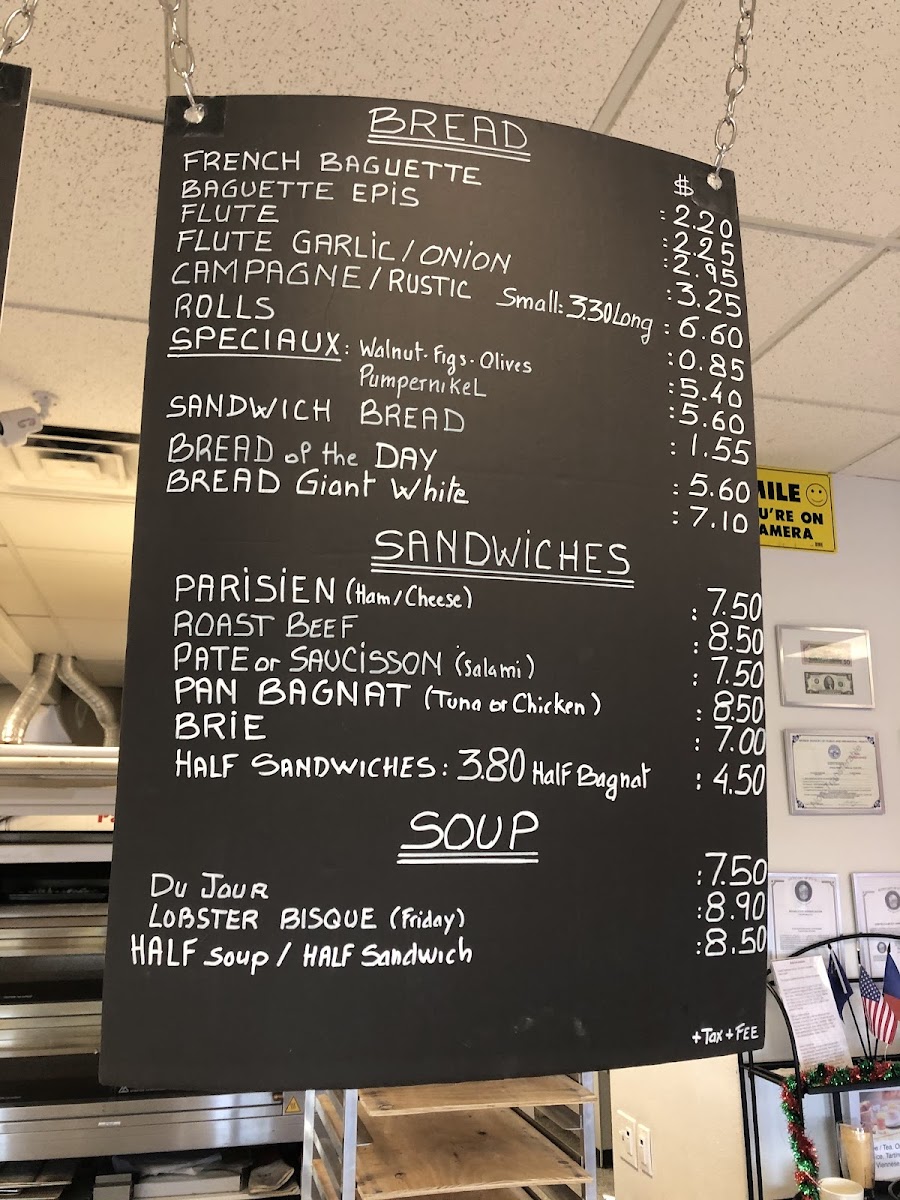 BREAD
$
FRENCH BAGUETTE : 2.20
BAGUETTE EPIS : 2.25
FLUTE : 2.95
FLUTE GARLIC / ONION : 3.25
CAMPAGNE / RUSTIC Small: 3.30 Long : 6.60
ROLLS : 0.85
SPECIAUX : Walnut - Figs - Olives : 5.40
PumperniKeL : 5.60
SANDWICH BREAD : 1.55
BREAD of the DAY : 5.60
BREAD Giant White : 7.10
SANDWICHES
PARISIEN (Ham / Cheese) : 7.50
ROAST BEEF : 8.50
PATE or SAUCISSON (Salami) : 7.50
PAN BAGNAT (Tuna or Chicken) : 8.50
BRIE : 7.00
HALF SANDWICHES : 3.80 Half Bagnat : 4.50
SOUP
DU JOUR : 7.50
LOBSTER BISQUE (Friday) : 8.90
HALF Soup / HALF Sandwich : 8.50
+ Tax + FEE
MILE
U'RE ON
AMERA